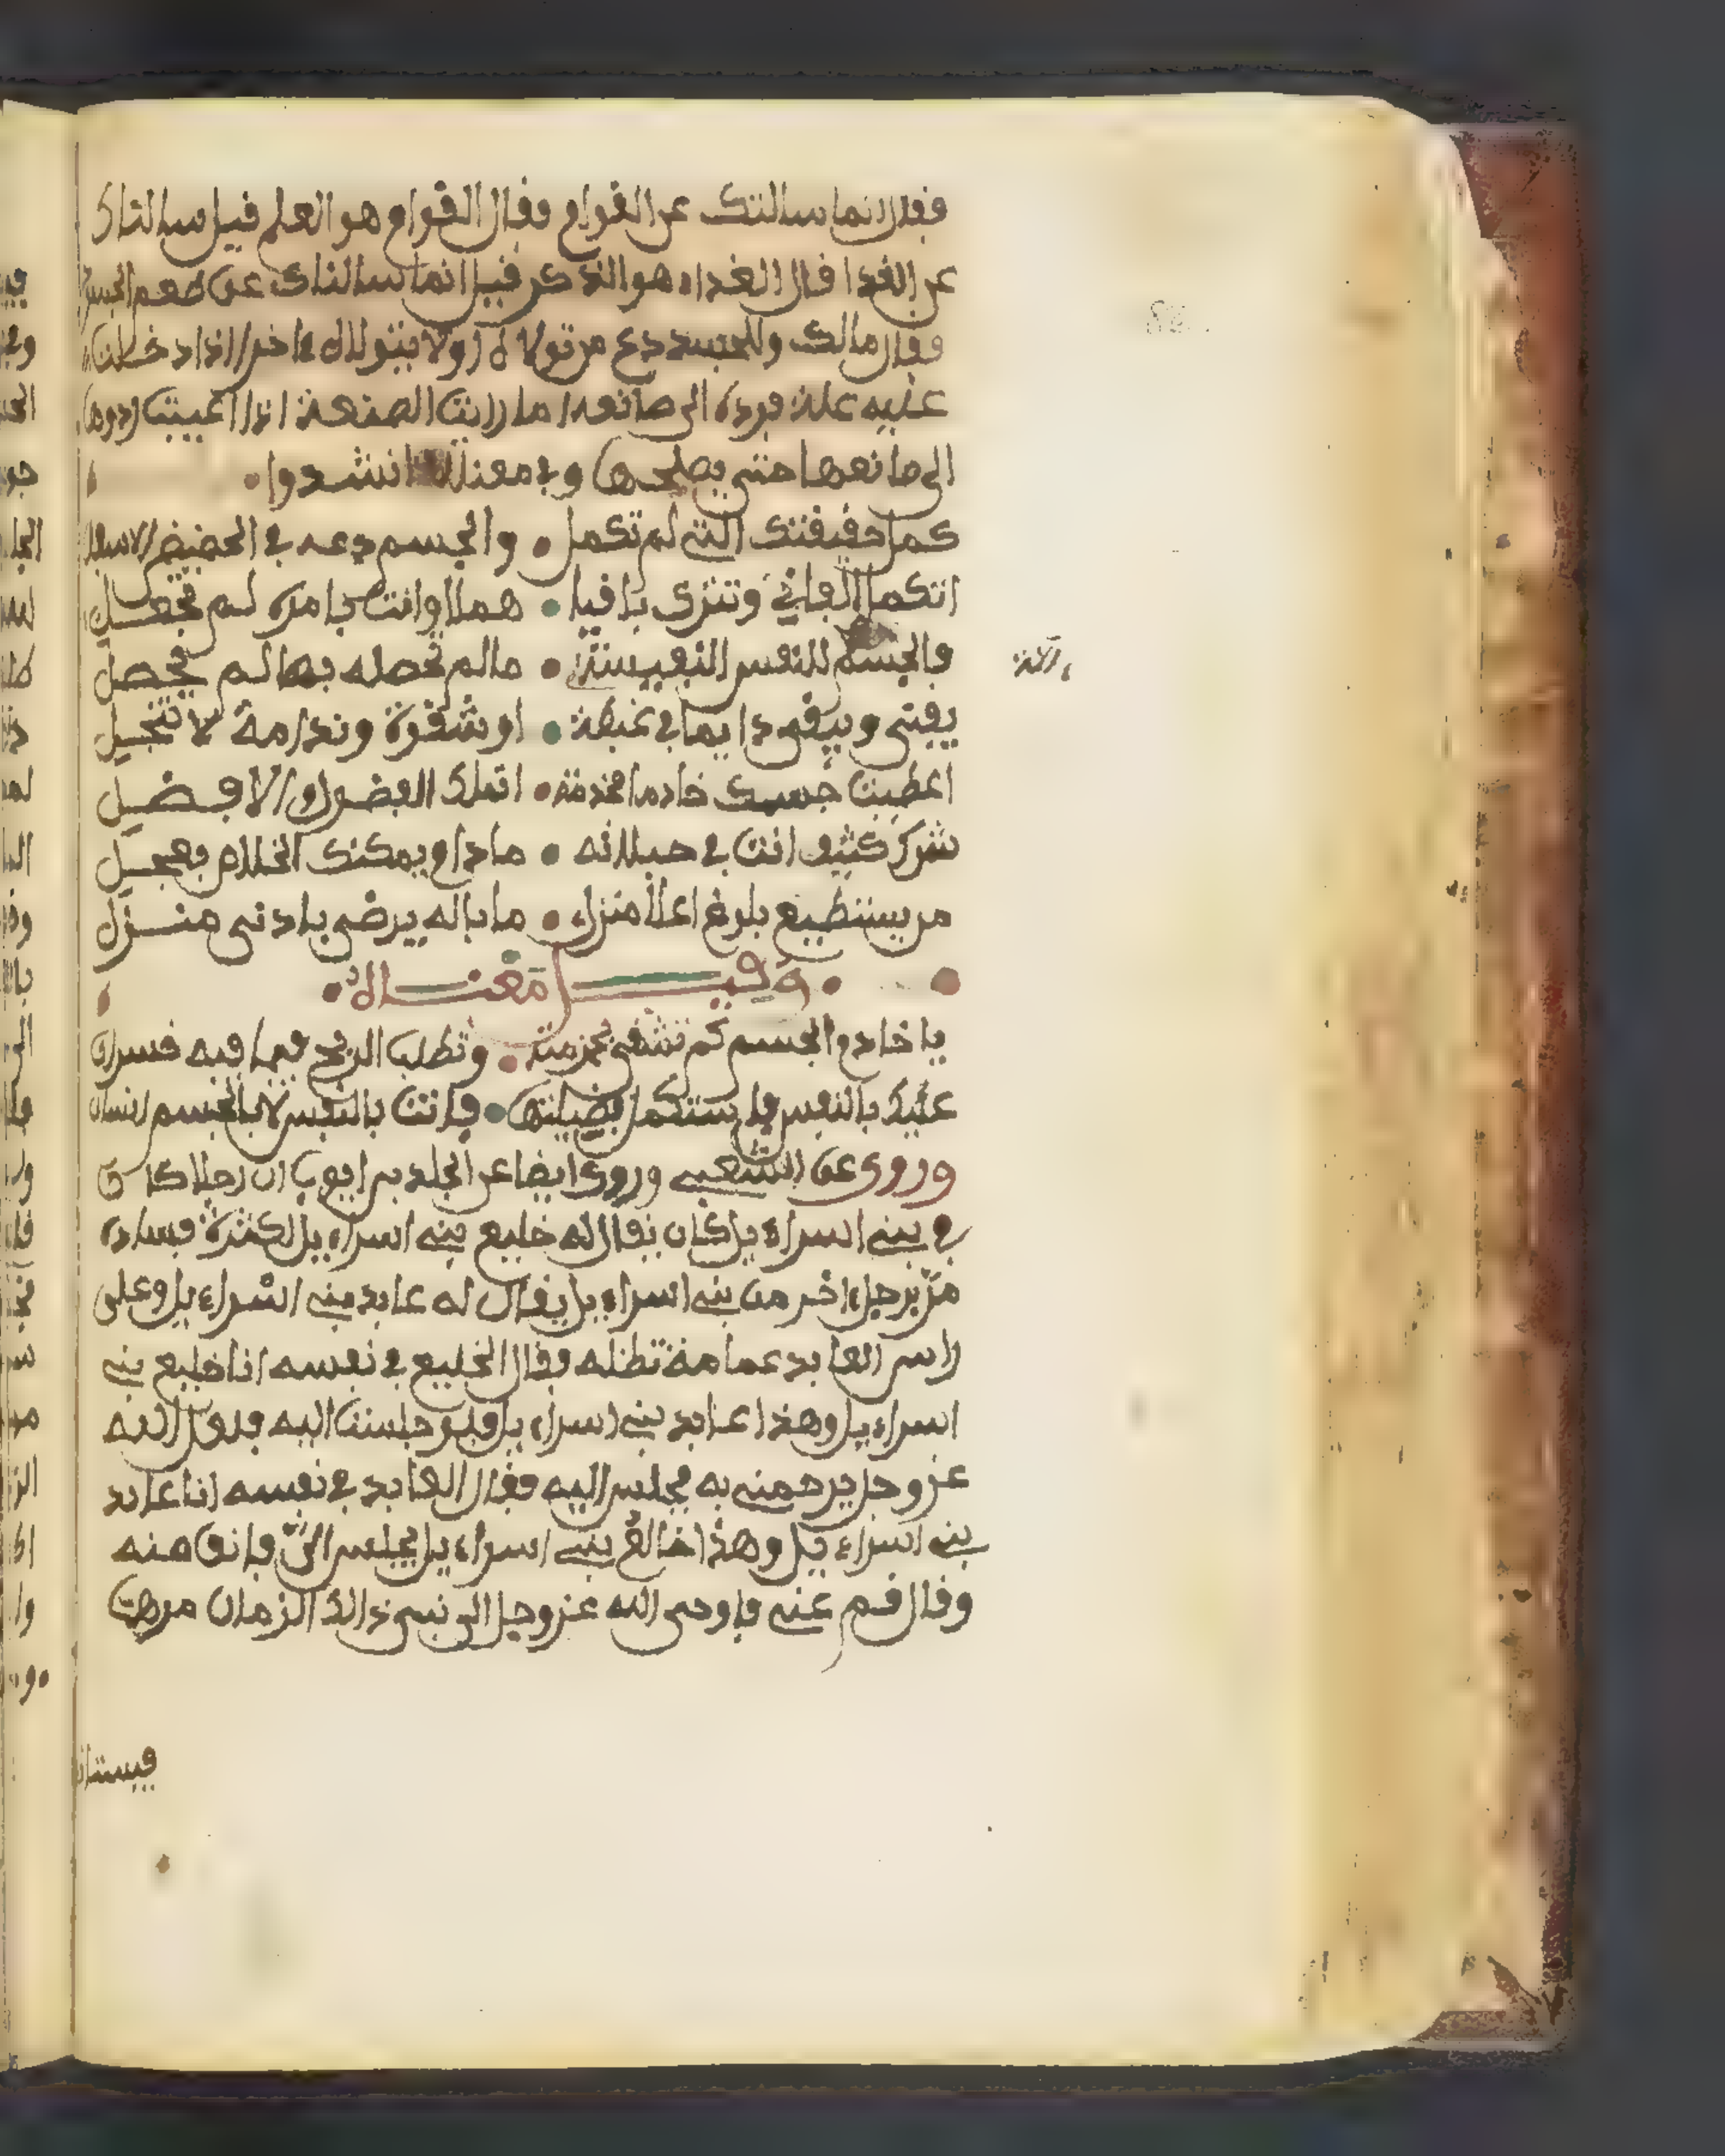 فقال انما سالتك عن القوام فقال القوام هو العلم قيل سالناك
عن الغدا قال الغداء هو الذكر قيل انما سالناك عن طعم الجسد
فقال مالك وللجسد دع من تولاه اولا يتولاه ءاخرا اذا دخلت
عليه علة فرده الى صانعه اما رايت الصنعة اذا اعيبت ردوها
الى صانعها حتى يصلحها وفي معناه انشدوا
كمل حقيقتك التي لم تكمل • والجسم دعه في الحضيض الاسفل
اتكمل الفاني وتترك باقيا • هملا وانت بامره لم تحفل
فالجسم للنفس النفيسة • ما لم تحصله بها لم يحصل
ءالة
يفنى ويبقى دايما في غبطة • او شقوة وندامة لا تنجل
اعطيت جسمك خادما فخدمته • اتملك المفضول الافضل
شرك كثيف انت في حبلاته • ما دام يمكنك الخلاص فعجل
من يستطيع بلوغ اعلا منزل • ما باله يرضى بادنى منزل
وفي معناه
يا خادم الجسم كم تشقى بخدمته • وتطلب الربح فيما فيه خسران
عليك بالنفس فاستكمل فضيلتها • فانت بالنفس لا بالجسم انسان
وروي عن الشعبي وروي ايضا عن الجلد بن ايوب ان رجلا كان
في بني اسراءيل كان يقال له خليع بني اسراءيل لكثرة فساده
مر برجل ءاخر من بني اسراءيل يقال له عابد بني اسراءيل وعلى
راس العابد عمامة تظله فقال الخليع في نفسه انا خليع بني
اسراءيل وهذا عابد بني اسراءيل فلو جلست اليه فلعل الله
عز وجل يرحمني به فجلس اليه فقال العابد في نفسه انا عابد
بني اسراءيل وهذا خالع بني اسراءيل يجلس الي فانف منه
وقال قم عني فاوحى الله عز وجل الى نبي ذالك الزمان مرهما